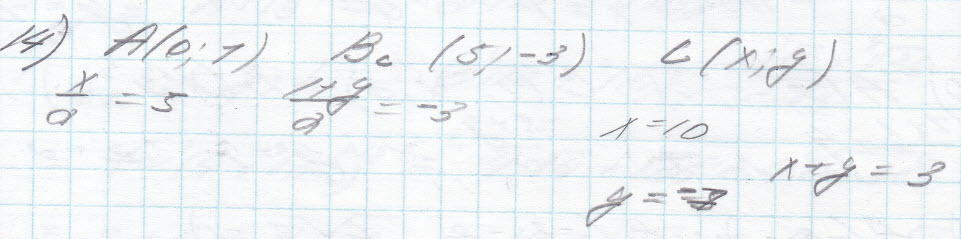 14) A(0; 1) B_c (5; -3) C(x; y)
x/2 = 5 (1+y)/2 = -3
x = 10
x + y = 3
y = -7